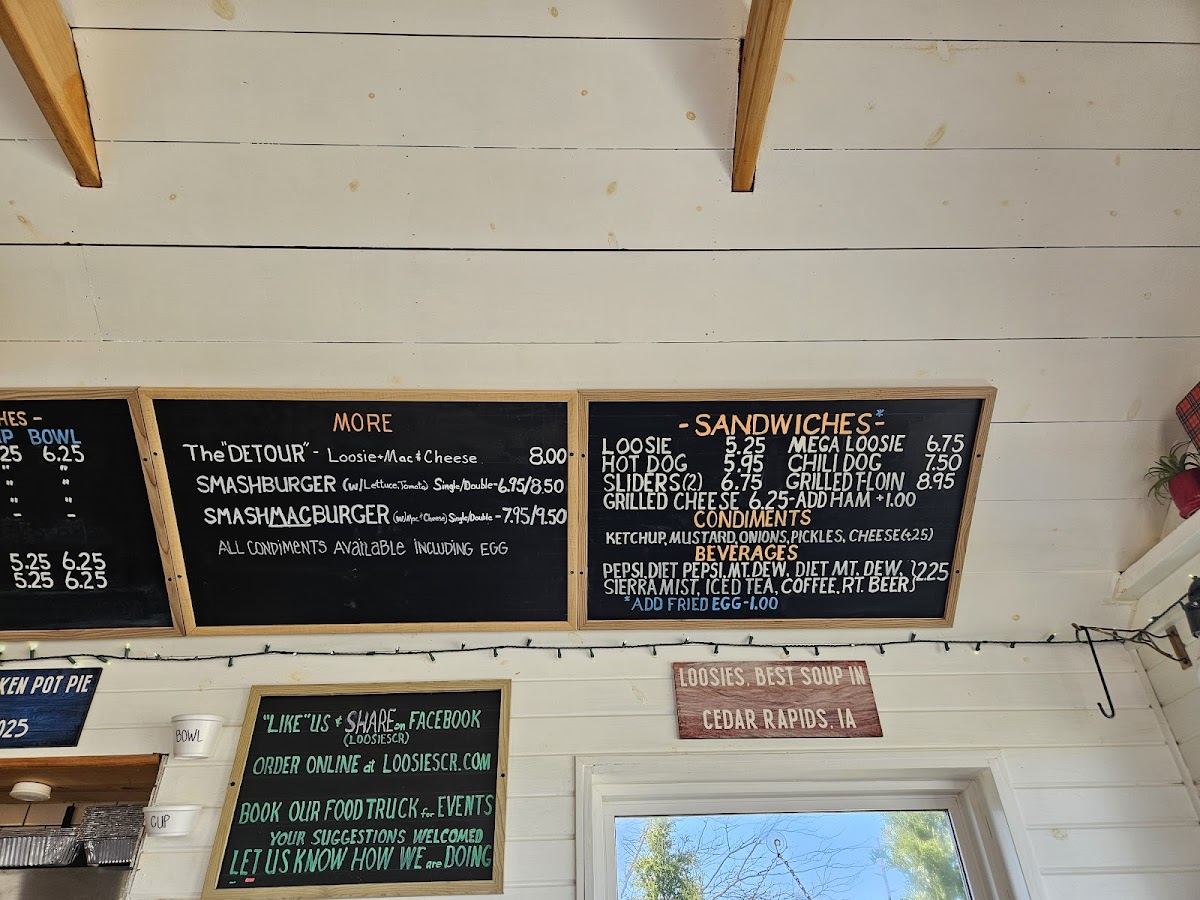 HES -
P BOWL
25 6.25
" "
" "
- -
5.25 6.25
5.25 6.25
MORE
The "DETOUR" - Loosie + Mac & Cheese 8.00
SMASHBURGER (w/Lettuce, Tomato) Single/Double - 6.95/8.50
SMASHMACBURGER (w/Mac & Cheese) Single/Double - 7.95/9.50
ALL CONDIMENTS AVAILABLE INCLUDING EGG
- SANDWICHES* -
LOOSIE 5.25 MEGA LOOSIE 6.75
HOT DOG 5.95 CHILI DOG 7.50
SLIDERS (2) 6.75 GRILLED T-LOIN 8.95
GRILLED CHEESE 6.25 - ADD HAM +1.00
CONDIMENTS
KETCHUP, MUSTARD, ONIONS, PICKLES, CHEESE (+.25)
BEVERAGES
PEPSI, DIET PEPSI, MT. DEW, DIET MT. DEW, } 2.25
SIERRA MIST, ICED TEA, COFFEE, RT. BEER
*ADD FRIED EGG - 1.00
KEN POT PIE
025
BOWL
CUP
"LIKE" US & SHARE on FACEBOOK
(LOOSIESCR)
ORDER ONLINE at LOOSIESCR.COM
BOOK OUR FOOD TRUCK for EVENTS
YOUR SUGGESTIONS WELCOMED
LET US KNOW HOW WE are DOING
LOOSIES, BEST SOUP IN
CEDAR RAPIDS, IA